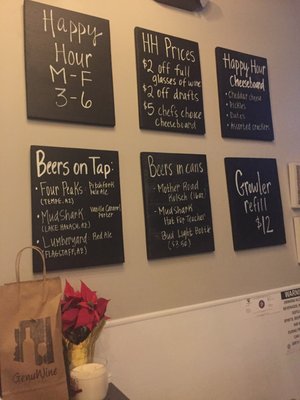 Happy
Hour
M-F
3-6
HH Prices
$2 off full
glasses of wine
$2 off drafts
$5 chefs choice
cheeseboard
Happy Hour
Cheeseboard
Cheddar cheese
Pickles
Dates
Assorted crackers
Beers on Tap:
Four Peaks
(Tempe, AZ)
Pitchfork
Pale Ale
MudShark Vanilla Caramel
(Lake Havasu, AZ) Porter
Lumberyard Red Ale
(Flagstaff, AZ)
Beers in cans
Mother Road
Kolsch
Mudshark
Hot for Teacher
Bud Light Bottle
($3.50)
Growler
refill
$12
GenuWine
WARNING